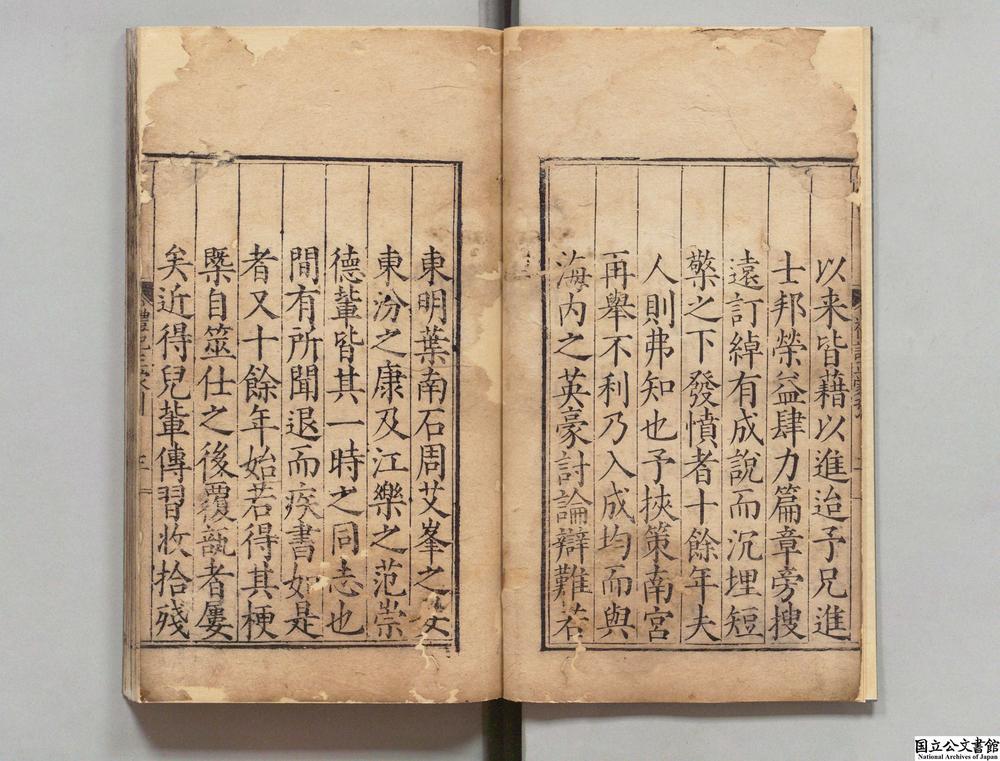 以来皆藉以進迨予兄進
士邦榮益肆力篇章旁搜
遠訂綽有成說而沉埋短
檠之下發憤者十餘年夫
人則弗知也予挾策南宮
再舉不利乃入成均而與
海内之英豪討論辯難若
東明葉南石周艾峯之
東汾之康及江樂之范崇
德軰皆其一時之同志也
間有所聞退而疾書如是
者又十餘年始若得其梗
槩自筮仕之後覆瓿者屢
矣近得兒軰傳習收拾殘
国立公文書館
National Archives of Japan